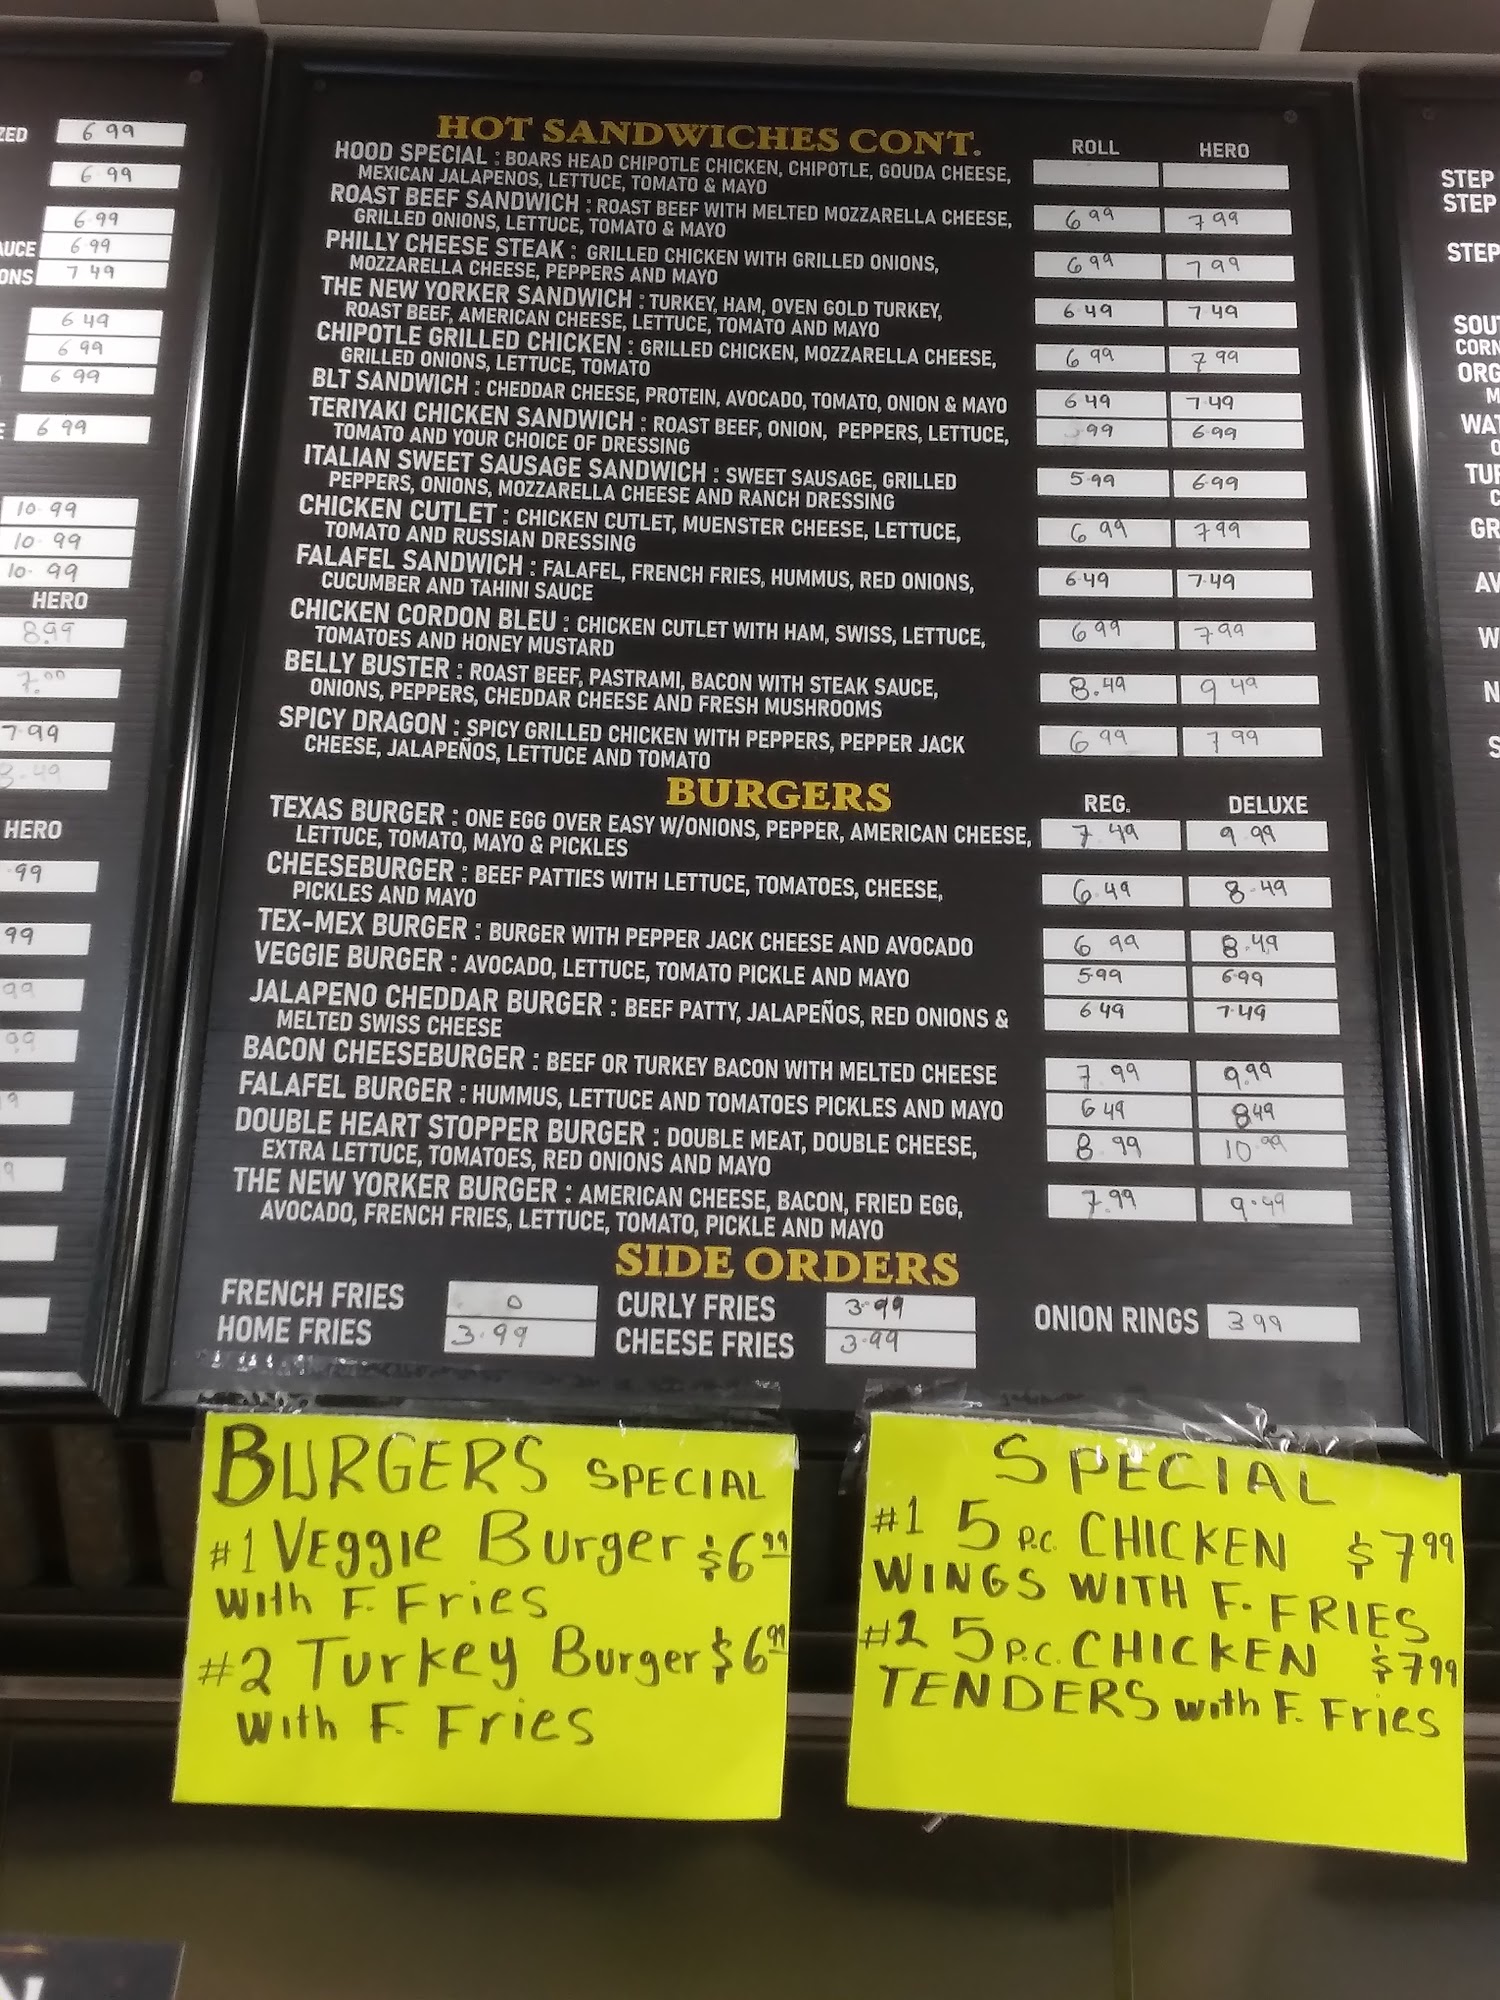 ZED 6 99
6.99
6.99
AUCE 6 99
ONS 7 49
6 49
6 99
6 99
E 6 99
10-99
10-99
10-99
HERO
8.99
7.00
7.99
8.49
HERO
.99
99
99
99
HOT SANDWICHES CONT. ROLL HERO
HOOD SPECIAL : BOARS HEAD CHIPOTLE CHICKEN, CHIPOTLE, GOUDA CHEESE,
MEXICAN JALAPENOS, LETTUCE, TOMATO & MAYO
ROAST BEEF SANDWICH : ROAST BEEF WITH MELTED MOZZARELLA CHEESE, 6 99 7 99
GRILLED ONIONS, LETTUCE, TOMATO & MAYO
PHILLY CHEESE STEAK : GRILLED CHICKEN WITH GRILLED ONIONS, 6 99 7 99
MOZZARELLA CHEESE, PEPPERS AND MAYO
THE NEW YORKER SANDWICH : TURKEY, HAM, OVEN GOLD TURKEY, 6.49 7.49
ROAST BEEF, AMERICAN CHEESE, LETTUCE, TOMATO AND MAYO
CHIPOTLE GRILLED CHICKEN : GRILLED CHICKEN, MOZZARELLA CHEESE, 6 99 7 99
GRILLED ONIONS, LETTUCE, TOMATO
BLT SANDWICH : CHEDDAR CHEESE, PROTEIN, AVOCADO, TOMATO, ONION & MAYO 6 49 7.49
TERIYAKI CHICKEN SANDWICH : ROAST BEEF, ONION, PEPPERS, LETTUCE, 99 6.99
TOMATO AND YOUR CHOICE OF DRESSING
ITALIAN SWEET SAUSAGE SANDWICH : SWEET SAUSAGE, GRILLED 5.99 6.99
PEPPERS, ONIONS, MOZZARELLA CHEESE AND RANCH DRESSING
CHICKEN CUTLET : CHICKEN CUTLET, MUENSTER CHEESE, LETTUCE, 6 99 7 99
TOMATO AND RUSSIAN DRESSING
FALAFEL SANDWICH : FALAFEL, FRENCH FRIES, HUMMUS, RED ONIONS, 6.49 7.49
CUCUMBER AND TAHINI SAUCE
CHICKEN CORDON BLEU : CHICKEN CUTLET WITH HAM, SWISS, LETTUCE, 6 99 7 99
TOMATOES AND HONEY MUSTARD
BELLY BUSTER : ROAST BEEF, PASTRAMI, BACON WITH STEAK SAUCE, 8.49 9 49
ONIONS, PEPPERS, CHEDDAR CHEESE AND FRESH MUSHROOMS
SPICY DRAGON : SPICY GRILLED CHICKEN WITH PEPPERS, PEPPER JACK 6 99 7 99
CHEESE, JALAPEÑOS, LETTUCE AND TOMATO
BURGERS REG. DELUXE
TEXAS BURGER : ONE EGG OVER EASY W/ONIONS, PEPPER, AMERICAN CHEESE, 7.49 9.99
LETTUCE, TOMATO, MAYO & PICKLES
CHEESEBURGER : BEEF PATTIES WITH LETTUCE, TOMATOES, CHEESE, 6.49 8.49
PICKLES AND MAYO
TEX-MEX BURGER : BURGER WITH PEPPER JACK CHEESE AND AVOCADO 6 99 8.49
VEGGIE BURGER : AVOCADO, LETTUCE, TOMATO PICKLE AND MAYO 5.99 6.99
JALAPENO CHEDDAR BURGER : BEEF PATTY, JALAPEÑOS, RED ONIONS & 6 49 7.49
MELTED SWISS CHEESE
BACON CHEESEBURGER : BEEF OR TURKEY BACON WITH MELTED CHEESE 7.99 9.99
FALAFEL BURGER : HUMMUS, LETTUCE AND TOMATOES PICKLES AND MAYO 6 49 8 49
DOUBLE HEART STOPPER BURGER : DOUBLE MEAT, DOUBLE CHEESE, 8.99 10.99
EXTRA LETTUCE, TOMATOES, RED ONIONS AND MAYO
THE NEW YORKER BURGER : AMERICAN CHEESE, BACON, FRIED EGG, 7.99 9.49
AVOCADO, FRENCH FRIES, LETTUCE, TOMATO, PICKLE AND MAYO
SIDE ORDERS
FRENCH FRIES CURLY FRIES 3.99 ONION RINGS 3 99
HOME FRIES 3.99 CHEESE FRIES 3.99
STEP
STEP
STEP
SOU
CORN
ORG
M
WAT
TUR
C
GR
AV
W
N
S
BURGERS SPECIAL
#1 Veggie Burger $6 99
with F. Fries
#2 Turkey Burger $6 99
with F. Fries
SPECIAL
#1 5 P.C. CHICKEN $7 99
WINGS WITH F. FRIES
#2 5 P.C. CHICKEN $7 99
TENDERS with F. Fries